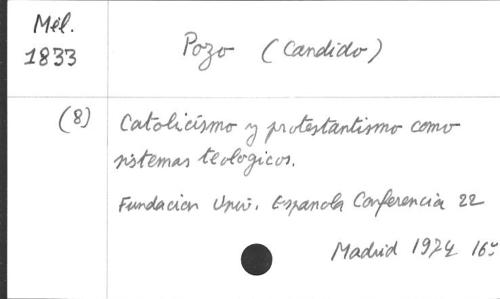 Mél.
1833
Pozo (Candido)
(8) Catolicismo y protestantismo como
sistemas teologicos.
Fundacion Univ. Espanola Conferencia 22
Madrid 1974 16º